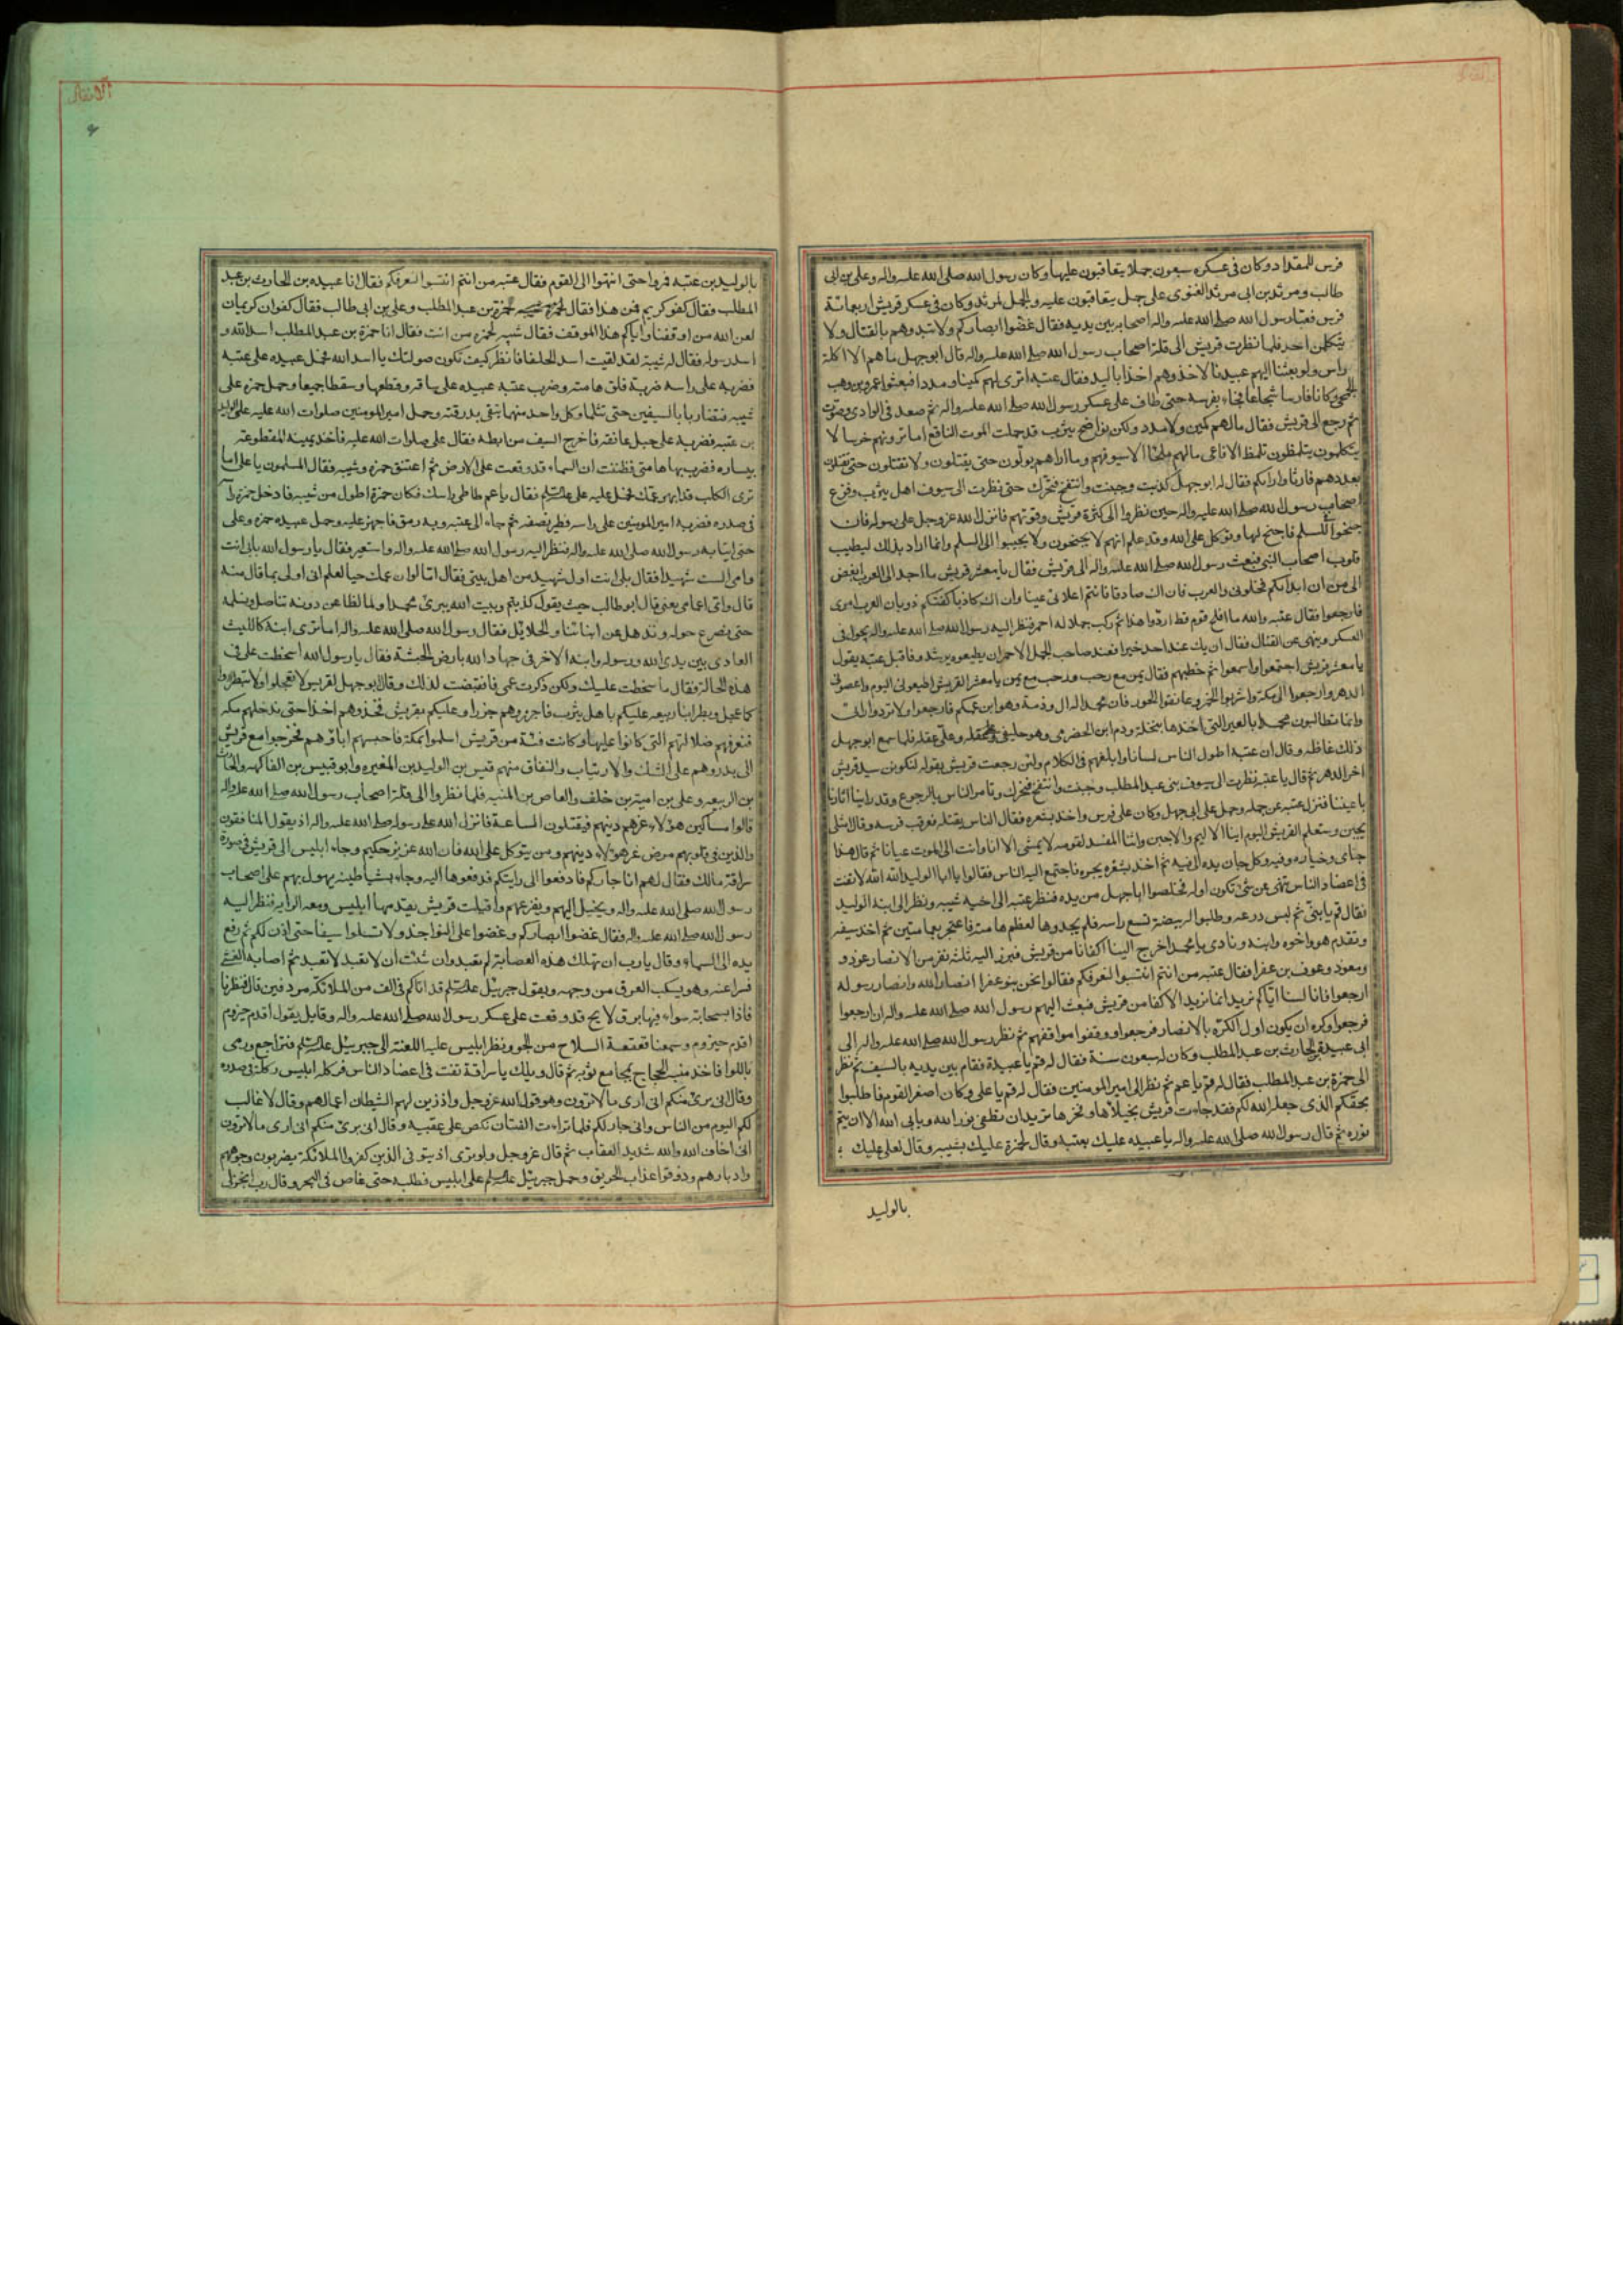 الانفال
فرس للمقداد وكان فى عسكره سبعون جملا يتعاقبون عليها وكان رسول الله صلى الله عليه واله وعلى بن ابى
طالب ومرثد بن ابى مرثد الغنوى على جمل يتعاقبون عليه والجمل لمرثد وكان فى عسكر قريش اربعمائة
فرس فعبا رسول الله صلى الله عليه واله اصحابه بين يديه فقال غضوا ابصاركم ولا تبدوهم بالقتال ولا
يتكلمن احد فلما نظرت قريش الى قلة اصحاب رسول الله صلى الله عليه واله قال ابو جهل ما هم الا اكلة
راس ولو بعثنا اليهم عبيدنا لاخذوهم اخذا باليد فقال عتبه اترى لهم كمينا و مددا فبعثوا عمرو بن وهب
الجمحى وكان فارسا شجاعا فجاء بفرسه حتى طاف على عسكر رسول الله صلى الله عليه واله ثم صعد فى الوادى وصوت
ثم رجع الى قريش فقال ما لهم كمين ولا مدد ولكن نواضح يثرب قد حملت الموت الناقع اما ترونهم خرسا لا
يتكلمون يتلمظون تلمظ الافاعى ما لهم ملجا الا سيوفهم وما اراهم يولون حتى يقتلون ولا يقتلون حتى يقتلون
بعددهم فارتاوا رايكم فقال له ابو جهل كذبت وجبنت وانتفخ سحرك حتى نظرت الى سيوف اهل يثرب وفزع
اصحاب رسول الله صلى الله عليه واله حين نظروا الى كثرة قريش وقوتهم فانزل الله عز وجل على رسوله فان
جنحوا للسلم فاجنح لها وتوكل على الله وقد علم انهم لا يجنحون ولا يجيبوا الى السلم وانما اراد بذلك ليطيب
قلوب اصحاب النبى فبعث رسول الله صلى الله عليه واله الى قريش فقال يا معشر قريش ما احد الى العرب ابغض
الى من ان ابدا بكم فخلونى والعرب فان اك صادقا فانتم اعلا بى عينا وان اك كاذبا كفتكم ذوبان العرب امرى
فارجعوا فقال عتبه والله ما افلح قوم قط ردوا هذا ثم ركب جملا له احمر فنظر اليه رسول الله صلى الله عليه واله يجول فى
العسكر وينهى عن القتال فقال ان يك عند احد خير فعند صاحب الجمل الاحمر ان يطيعوه يرشدوا فاقبل عتبه يقول
يا معشر قريش اجتمعوا واسمعوا ثم خطبهم فقال يمن مع رحب ورحب مع يمن يا معشر القريش اطيعونى اليوم واعصونى
الدهر وارجعوا الى مكة واشربوا الخمور وعانقوا الحور فان محمدا له ال وذمة وهو ابن عمكم فارجعوا ولا تردوا رايى
وانما تطالبون محمدا بالعير التى اخذها بنخلة ودم ابن الحضرمى وهو حليفى وعلى عقله فلما سمع ابو جهل
ذلك غاظه وقال ان عتبه اطول الناس لسانا وابلغهم فى الكلام ولئن رجعت قريش بقوله لتكونن سيد قريش
اخر الدهر ثم قال يا عتبه نظرت الى سيوف بنى عبد المطلب وجبنت وانتفخ سحرك وتامر الناس بالرجوع وقد راينا ثارنا
باعيننا فنزل عتبه عن جمله وحمل على ابى جهل وكان على فرس واخذ بشعره فقال الناس يقتله فعرقب فرسه وقال امثلى
يجبن وستعلم القريش اليوم اينا الالام والاجبن واينا المفسد لقومه لا يمشى الا انا وانت الى الموت عيانا ثم قال هذا
جناى وخياره فيه وكل جان يده الى فيه ثم اخذ بشعره يجره فاجتمع اليه الناس فقالوا يا ابا الوليد الله الله لا تفت
فى اعضاد الناس تنهى عن شئ تكون اوله فخلصوا ابا جهل من يده فنظر عتبه الى اخيه شيبه ونظر الى ابنه الوليد
فقال قم يا بنى ثم لبس درعه وطلبوا له بيضة تسع راسه فلم يجدوها لعظم هامته فاعتجر بعمامتين ثم اخذ سيفه
وتقدم هو واخوه وابنه ونادى يا محمد اخرج الينا اكفانا من قريش فبرز اليه ثلثه نفر من الانصار عوذ و
ومعوذ وعوف بن عفرا فقال عتبه من انتم انتسبوا لنعرفكم فقالوا نحن بنو عفرا انصار الله وانصار رسوله
ارجعوا فانا لسنا اياكم نريد انما نريد الاكفا من قريش فبعث اليهم رسول الله صلى الله عليه واله ان ارجعوا
فرجعوا وكره ان يكون اول الكرة بالانصار فرجعوا ووقفوا مواقفهم ثم نظر رسول الله صلى الله عليه واله الى
ابى عبيدة بن الحارث بن عبد المطلب وكان له سبعون سنة فقال له قم يا عبيدة فقام بين يديه بالسيف ثم نظر
الى حمزة بن عبد المطلب فقال له قم يا عم ثم نظر الى امير المومنين فقال له قم يا على وكان اصغر القوم فاطلبوا
بحقكم الذى جعله الله لكم فقد جاءت قريش بخيلائها وفخرها تريد ان تطفى نور الله ويابى الله الا ان يتم
نوره ثم قال رسول الله صلى الله عليه واله يا عبيده عليك بعتبه وقال لحمزة عليك بشيبه وقال لعلى عليك
بالوليد
الانفال
بالوليد بن عتبه فمروا حتى انتهوا الى القوم فقال عتبه من انتم انتسبوا لنعرفكم فقال انا عبيده بن الحارث بن عبد
المطلب فقال كفو كريم فمن هذا فقال حمزة بن عبد المطلب وعلى بن ابى طالب فقال كفوان كريمان
لعن الله من اوقفنا واياكم هذا الموقف فقال شيبه لحمزه من انت فقال انا حمزة بن عبد المطلب اسد الله و
اسد رسوله فقال له شيبه لقد لقيت اسد الحلفا فانظر كيف تكون صولتك يا اسد الله فحمل عبيده على عتبه
فضربه على راسه ضربة فلق هامته وضرب عتبه عبيده على ساقه وقطعها وسقطا جميعا وحمل حمزه على
شيبه فتضاربا بالسيفين حتى تثلما وكل واحد منهما يتقى بدرقته وحمل امير المومنين صلوات الله عليه على الوليد
بن عتبه فضربه على حبل عاتقه فاخرج السيف من ابطه فقال على صلوات الله عليه فاخذ يمينه المقطوعة
بيساره فضرب بها هامتى فظننت ان السماء قد وقعت على الارض ثم اعتنق حمزه وشيبه فقال المسلمون يا على اما
ترى الكلب قد ابهر عمك فحمل عليه على عليه السلام فقال يا عم طاطئ راسك فكان حمزة اطول من شيبه فادخل حمزه راسه
فى صدره فضربه امير المومنين على راسه فطير نصفه ثم جاء الى عتبه وبه رمق فاجهز عليه وحمل عبيده حمزه وعلى
حتى ايتيا به رسول الله صلى الله عليه واله فنظر اليه رسول الله صلى الله عليه واله واستعبر فقال يا رسول الله بابى انت
وامى الست شهيدا فقال بلى انت اول شهيد من اهل بيتى فقال اما لو ان عمك حيا لعلم انى اولى بما قال منه
قال واى اعمامى يعنى قال ابو طالب حيث يقول كذبتم وبيت الله يبرئ محمدا ولما نطاعن دونه نناضل ونسلمه
حتى نصرع حوله ونذهل عن ابنائنا والحلائل فقال رسول الله صلى الله عليه واله اما ترى ابنه كالليث
العادى بين يدى الله ورسوله وابنه الاخر فى جهاد الله بارض الحبشة فقال يا رسول الله اسخطت على فى
هذه الحالة فقال ما سخطت عليك ولكن ذكرت عمى فانقبضت لذلك وقال ابو جهل لقريش لا تعجلوا ولا تبطروا
كما عجل وبطر ابنا ربيعه عليكم باهل يثرب فاجزروهم جزرا وعليكم بقريش فخذوهم اخذا حتى ندخلهم مكه
فنعرفهم ضلالتهم التى كانوا عليها وكانت فئة من قريش اسلموا بمكة فاحبسهم اباؤهم فخرجوا مع قريش
الى بدر وهم على الشك والارتياب والنفاق منهم قيس بن الوليد بن المغيره وابو قيس بن الفاكهه والحارث
بن الربيعه وعلى بن امية بن خلف والعاص بن المنبه فلما نظروا الى قلة اصحاب رسول الله صلى الله عليه واله
قالوا مساكين هؤلاء غرهم دينهم فيقتلون الساعة فانزل الله على رسوله صلى الله عليه واله اذ يقول المنافقون
والذين فى قلوبهم مرض غر هؤلاء دينهم ومن يتوكل على الله فان الله عزيز حكيم وجاء ابليس الى قريش فى صورة
سراقة مالك فقال لهم انا جاركم فادفعوا الى رايتكم فدفعوها اليه وجاء بشياطينه يهول بهم على اصحاب
رسول الله صلى الله عليه واله ويخيل اليهم ويفزعهم واقبلت قريش يقدمها ابليس ومعه الراية فنظر اليه
رسول الله صلى الله عليه واله فقال غضوا ابصاركم وعضوا على النواجذ ولا تسلوا سيفا حتى اذن لكم ثم رفع
يده الى السماء وقال يا رب ان تهلك هذه العصابة لم تعبد وان شئت ان لا تعبد لا تعبد ثم اصابه الغشى
فسرا عنه وهو يسكب العرق من وجهه ويقول جبرئيل عليه السلام قد اتاكم فى الف من الملائكه مردفين قال فنظرنا
فاذا بسحابة سوداء فيها برق لايح قد وقعت على عسكر رسول الله صلى الله عليه واله وقايل يقول اقدم حيزوم
اقدم حيزوم وسمعنا قعقعة السلاح من الجو ونظر ابليس عليه اللعنة الى جبرئيل عليه السلام فتراجع ورمى
باللوا فاخذ منبه الحجاج بمجامع ثوبه ثم قال ويلك يا سراقة تفت فى اعضاد الناس فركله ابليس ركلة فى صدره
وقال انى برئ منكم انى ارى ما لا ترون وهو قول الله عز وجل واذ زين لهم الشيطان اعمالهم وقال لا غالب
لكم اليوم من الناس وانى جار لكم فلما تراءت الفئتان نكص على عقبيه وقال انى برئ منكم انى ارى ما لا ترون
انى اخاف الله والله شديد العقاب ثم قال عز وجل ولو ترى اذ يتوفى الذين كفروا الملائكة يضربون وجوههم
وادبارهم وذوقوا عذاب الحريق وحمل جبرئيل عليه السلام على ابليس فطلبه حتى غاص فى البحر وقال رب انجز لى